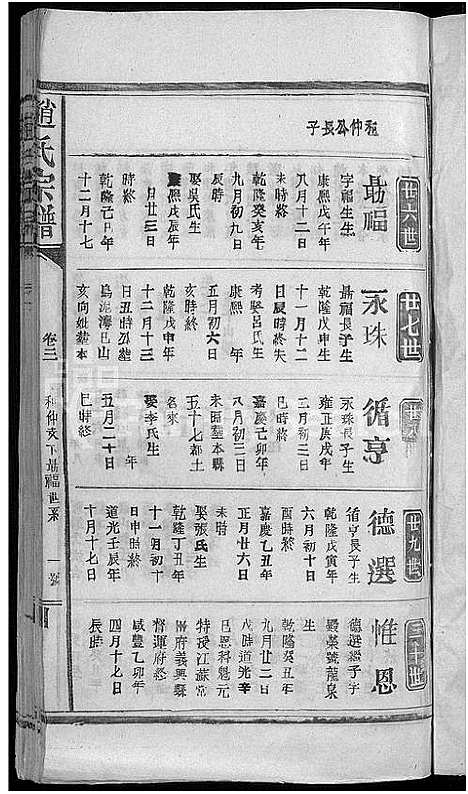 和仲公長子
廿六世
勗福
字福生生
康熙戊午年
八月十二日
未時終
乾隆癸亥年
九月初九日
娶吳氏生
康熙戊辰年
月廿三日
時終
乾隆己日年
十二月十七
廿七世
永珠
勗福長子生
乾隆戊申生
十一月十二
日辰時終失
考娶呂氏生
康熙 年
五月初六日
時終
乾隆戊申年
十二月十三
日丑時終葬
烏泥灣巴山
亥向妣葬本
廿八
循亨
永珠長子生
雍正庚戌年
二月初三日
巳時終
嘉慶己卯年
八月初三日
未
五十七都
名來
娶李氏生
年
五月二十日
巳時終
廿九世
德選
循亨長子生
乾隆戊寅年
六月初十日
生
嘉慶乙丑年
正月廿六日
未時
娶張氏生
乾隆丁丑年
十一月初十
日申時終
道光壬辰年
十月十七日
三十世
惟恩
德選繼子字
榮號龍泉
生
乾隆癸丑年
九月廿二日
戌時道光辛
巳恩科魁元
特授江蘇常
州府義興縣
督運府終
咸豐乙卯年
四月十七日
辰時
趙氏宗譜
卷三
和仲支下勗福世系
一號